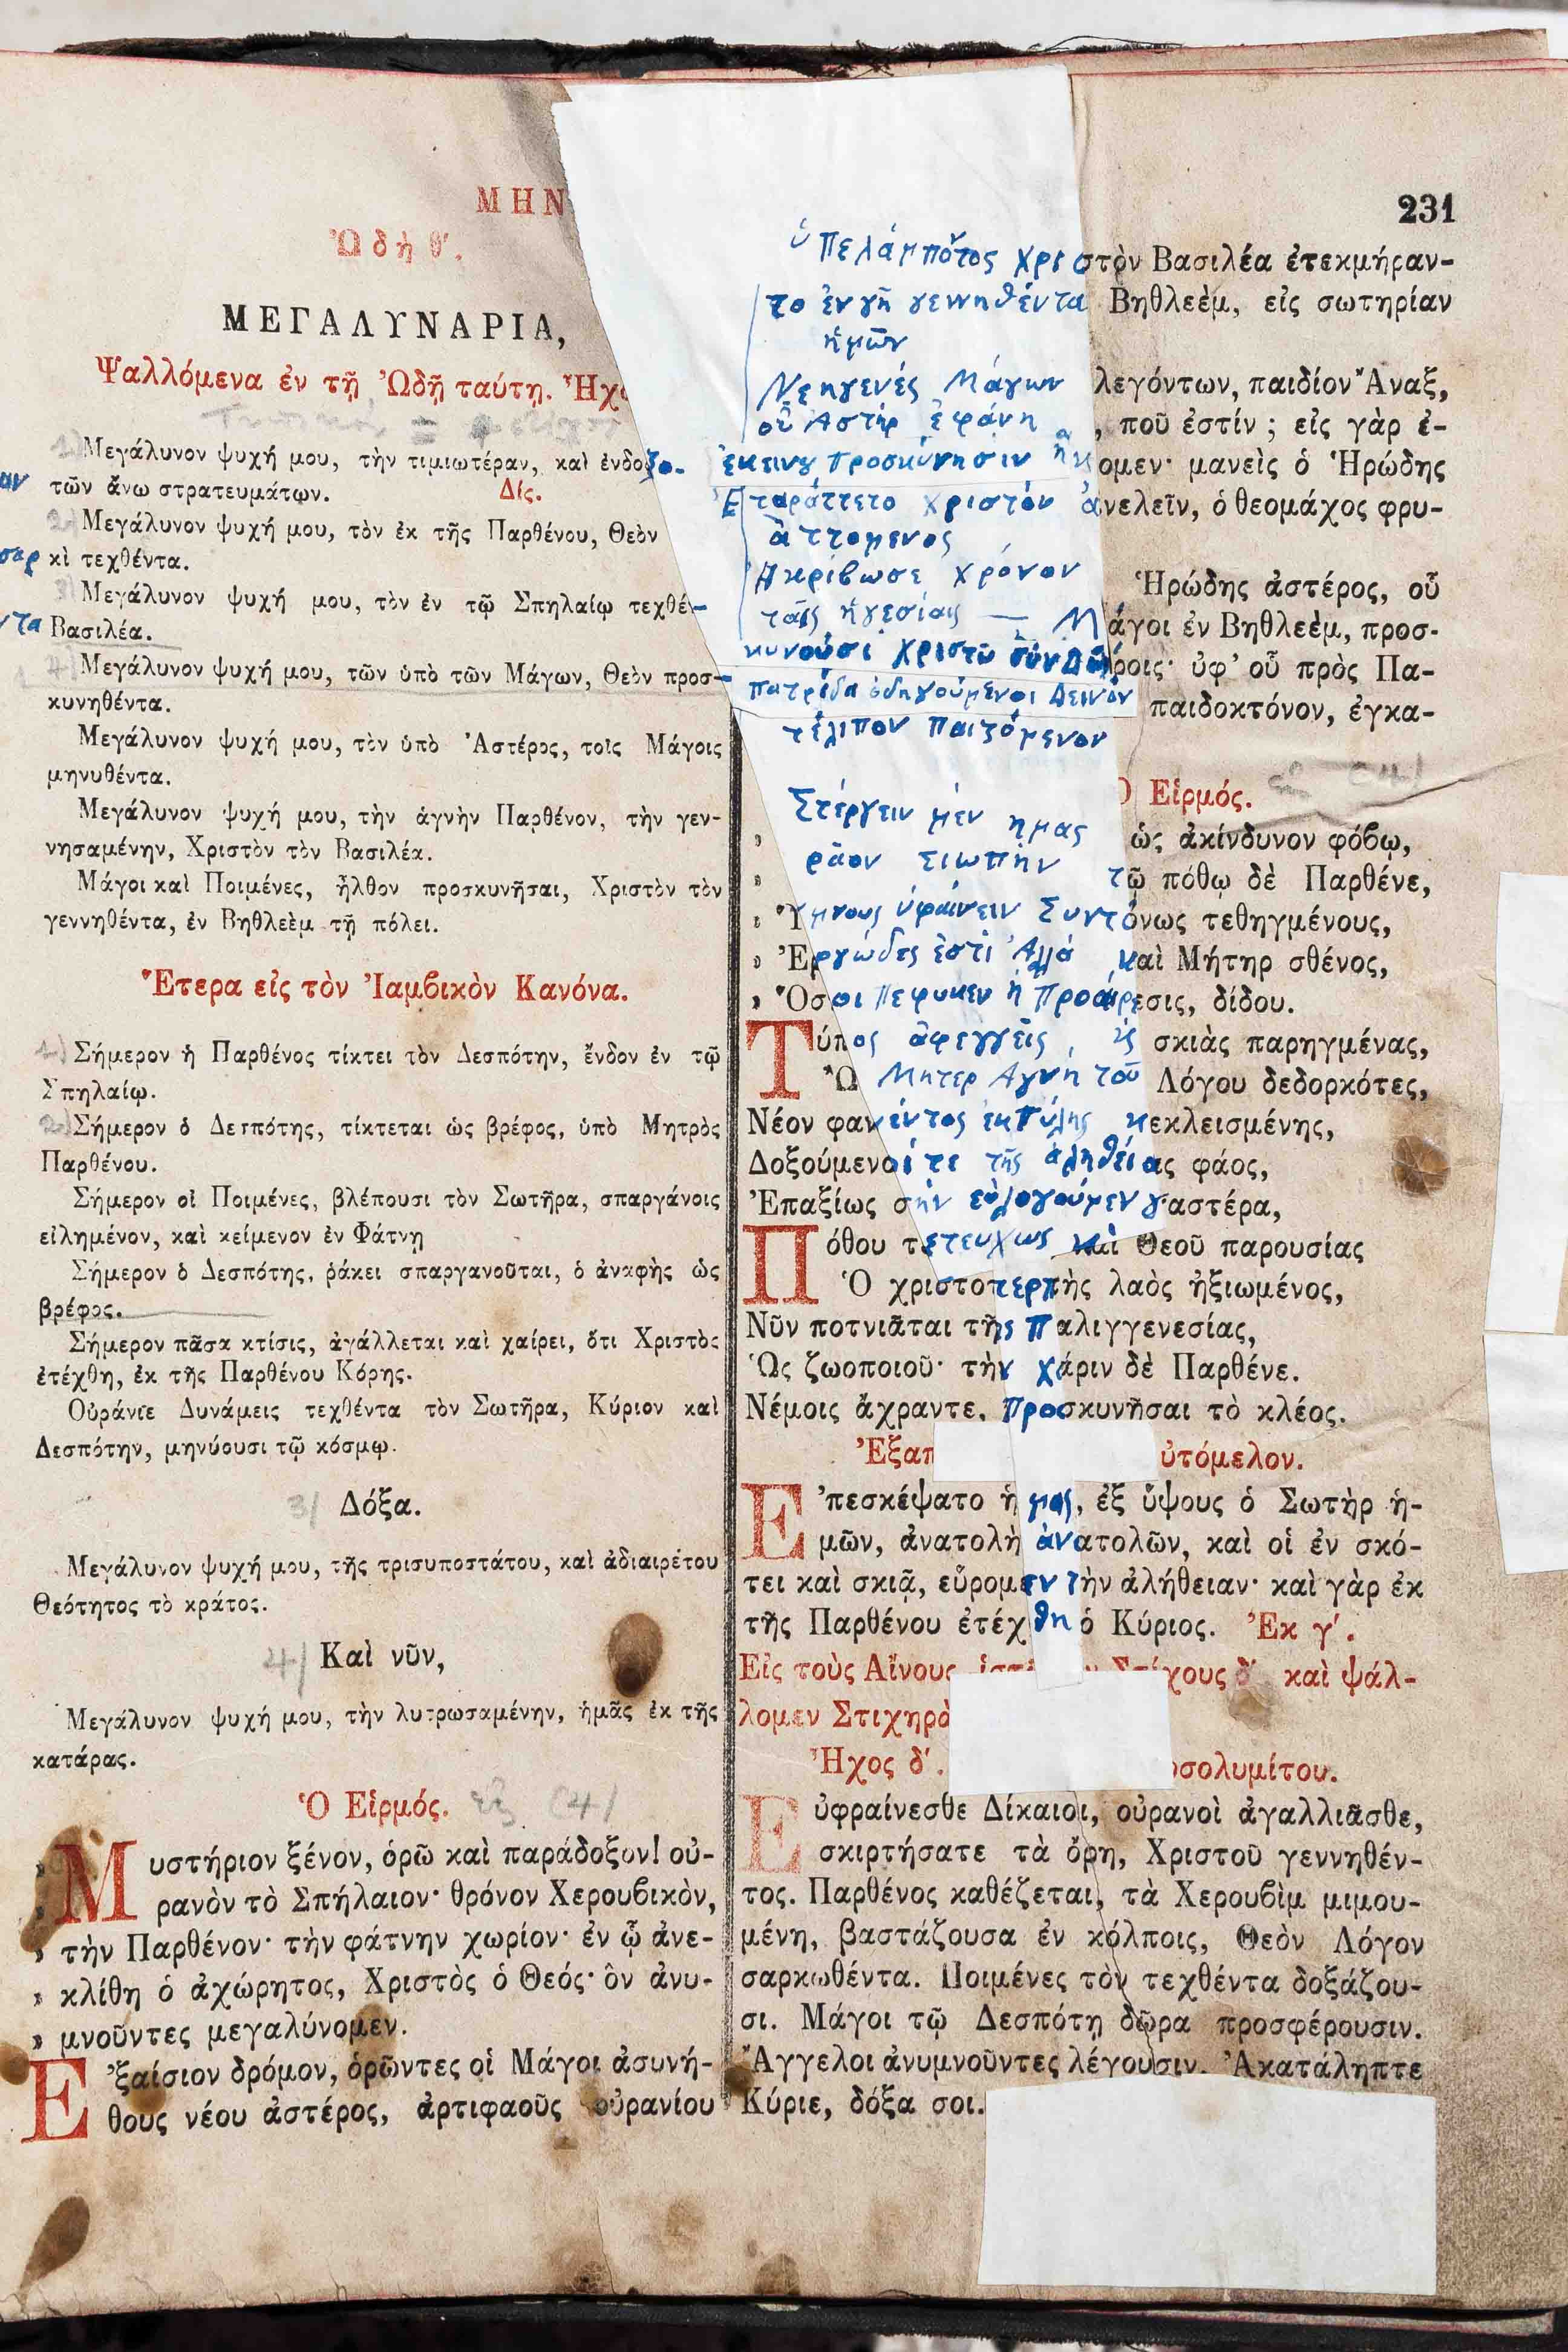 ΜΗΝ
231
Ὠδὴ θ΄.
ΜΕΓΑΛΥΝΑΡΙΑ,
Ψαλλόμενα ἐν τῇ Ὠδῇ ταύτῃ. Ἦχο
Μεγάλυνον ψυχή μου, τὴν τιμιωτέραν, καὶ ἐνδοξο-
τῶν ἄνω στρατευμάτων. Δίς.
Μεγάλυνον ψυχή μου, τὸν ἐκ τῆς Παρθένου, Θεὸν
σαρκὶ τεχθέντα.
Μεγάλυνον ψυχή μου, τὸν ἐν τῷ Σπηλαίῳ τεχθέ-
ντα Βασιλέα.
Μεγάλυνον ψυχή μου, τῶν ὑπὸ τῶν Μάγων, Θεὸν προσ-
κυνηθέντα.
Μεγάλυνον ψυχή μου, τὸν ὑπὸ Ἀστέρος, τοῖς Μάγοις
μηνυθέντα.
Μεγάλυνον ψυχή μου, τὴν ἁγνὴν Παρθένον, τὴν γεν-
νησαμένην, Χριστὸν τὸν Βασιλέα.
Μάγοι καὶ Ποιμένες, ἦλθον προσκυνῆσαι, Χριστὸν τὸν
γεννηθέντα, ἐν Βηθλεὲμ τῇ πόλει.
Ἕτερα εἰς τὸν Ἰαμβικὸν Κανόνα.
1) Σήμερον ἡ Παρθένος τίκτει τὸν Δεσπότην, ἔνδον ἐν τῷ
Σπηλαίῳ.
2) Σήμερον ὁ Δεσπότης, τίκτεται ὡς βρέφος, ὑπὸ Μητρὸς
Παρθένου.
Σήμερον οἱ Ποιμένες, βλέπουσι τὸν Σωτῆρα, σπαργάνοις
εἰλημένον, καὶ κείμενον ἐν Φάτνῃ
Σήμερον ὁ Δεσπότης, ῥάκει σπαργανοῦται, ὁ ἀναφὴς ὡς
βρέφος.
Σήμερον πᾶσα κτίσις, ἀγάλλεται καὶ χαίρει, ὅτι Χριστὸς
ἐτέχθη, ἐκ τῆς Παρθένου Κόρης.
Οὐράνιε Δυνάμεις τεχθέντα τὸν Σωτῆρα, Κύριον καὶ
Δεσπότην, μηνύουσι τῷ κόσμῳ.
3/ Δόξα.
Μεγάλυνον ψυχή μου, τῆς τρισυποστάτου, καὶ ἀδιαιρέτου
Θεότητος τὸ κράτος.
4/ Καὶ νῦν,
Μεγάλυνον ψυχή μου, τὴν λυτρωσαμένην, ἡμᾶς ἐκ τῆς
κατάρας.
Ὁ Εἱρμός. (4/
Μυστήριον ξένον, ὁρῶ καὶ παράδοξον! οὐ-
ρανὸν τὸ Σπήλαιον· θρόνον Χερουβικὸν,
» τὴν Παρθένον· τὴν φάτνην χωρίον· ἐν ᾧ ἀνε-
» κλίθη ὁ ἀχώρητος, Χριστὸς ὁ Θεός· ὃν ἀνυ-
» μνοῦντες μεγαλύνομεν.
Ἐξαίσιον δρόμον, ὁρῶντες οἱ Μάγοι ἀσυνή-
θους νέου ἀστέρος, ἀρτιφαοῦς οὐρανίου
ὑπελάμποτος Χριστὸν Βασιλέα ἐτεκμήραν-
το ἐν γῇ γεννηθέντα Βηθλεὲμ, εἰς σωτηρίαν
ἡμῶν
Νεηγενές Μάγων λεγόντων, παιδίον Ἄναξ,
οὗ Ἀστήρ ἐφάνη, ποῦ ἐστίν; εἰς γὰρ ἐ-
ἐκείνου προσκύνησιν ἥκομεν· μανεὶς ὁ Ἡρώδης
Ἐταράττετο Χριστόν ἀνελεῖν, ὁ θεομάχος φρυ-
ἀττομενος
Ἠκρίβωσε χρόνον Ἡρώδης ἀστέρος, οὗ
ταῖς ἡγεσίαις — Μάγοι ἐν Βηθλεὲμ, προσ-
κυνοῦσι Χριστῷ σὺν Δώροις· ὑφ' οὗ πρὸς Πα-
πατρίδα ὁδηγούμενοι Δεινόν παιδοκτόνον, ἐγκα-
τέλιπον παιζόμενον
Ὁ Εἱρμός. (4/
Στέργειν μὲν ημας ὡς ἀκίνδυνον φόβῳ,
» ρᾶον σιωπὴν τῷ πόθῳ δὲ Παρθένε,
» Ὕμνους ὑφαίνειν Συντόνως τεθηγμένους,
» Ἐργώδες ἐστὶ Ἀλλά καὶ Μήτηρ σθένος,
» Ὅσοι πεφυκεν ἡ Προαίρεσις, δίδου.
Τύπος ἀφεγγεῖς, κς σκιὰς παρηγμένας,
Ὦ Μητερ Αγνή τοῦ Λόγου δεδορκότες,
Νέον φανέντος ἐκ Πύλης κεκλεισμένης,
Δοξούμενοί τε τῆς ἀληθείας φάος,
Ἐπαξίως σὴν εὐλογοῦμεν γαστέρα,
Πόθου τετευχως καὶ Θεοῦ παρουσίας
Ὁ χριστοτερπὴς λαὸς ἠξιωμένος,
Νῦν ποτνιᾶται τῆς Παλιγγενεσίας,
Ὡς ζωοποιοῦ· τὴν χάριν δὲ Παρθένε.
Νέμοις ἄχραντε, προσκυνῆσαι τὸ κλέος.
Ἐξαπ ὐτόμελον.
Ἐπεσκέψατο ἡμας, ἐξ ὕψους ὁ Σωτὴρ ἡ-
μῶν, ἀνατολὴ ἀνατολῶν, καὶ οἱ ἐν σκό-
τει καὶ σκιᾷ, εὕρομεν τὴν ἀλήθειαν· καὶ γὰρ ἐκ
τῆς Παρθένου ἐτέχθη ὁ Κύριος. Ἐκ γ΄.
Εἰς τοὺς Αἴνους, χους δ΄ καὶ ψάλ-
λομεν Στιχηρὰ
Ἦχος δ΄. οσολυμίτου.
Εὐφραίνεσθε Δίκαιοι, οὐρανοὶ ἀγαλλιᾶσθε,
σκιρτήσατε τὰ ὄρη, Χριστοῦ γεννηθέν-
τος. Παρθένος καθέζεται, τὰ Χερουβὶμ μιμου-
μένη, βαστάζουσα ἐν κόλποις, Θεὸν Λόγον
σαρκωθέντα. Ποιμένες τὸν τεχθέντα δοξάζου-
σι. Μάγοι τῷ Δεσπότῃ δῶρα προσφέρουσιν.
Ἄγγελοι ἀνυμνοῦντες λέγουσιν. Ἀκατάληπτε
Κύριε, δόξα σοι.